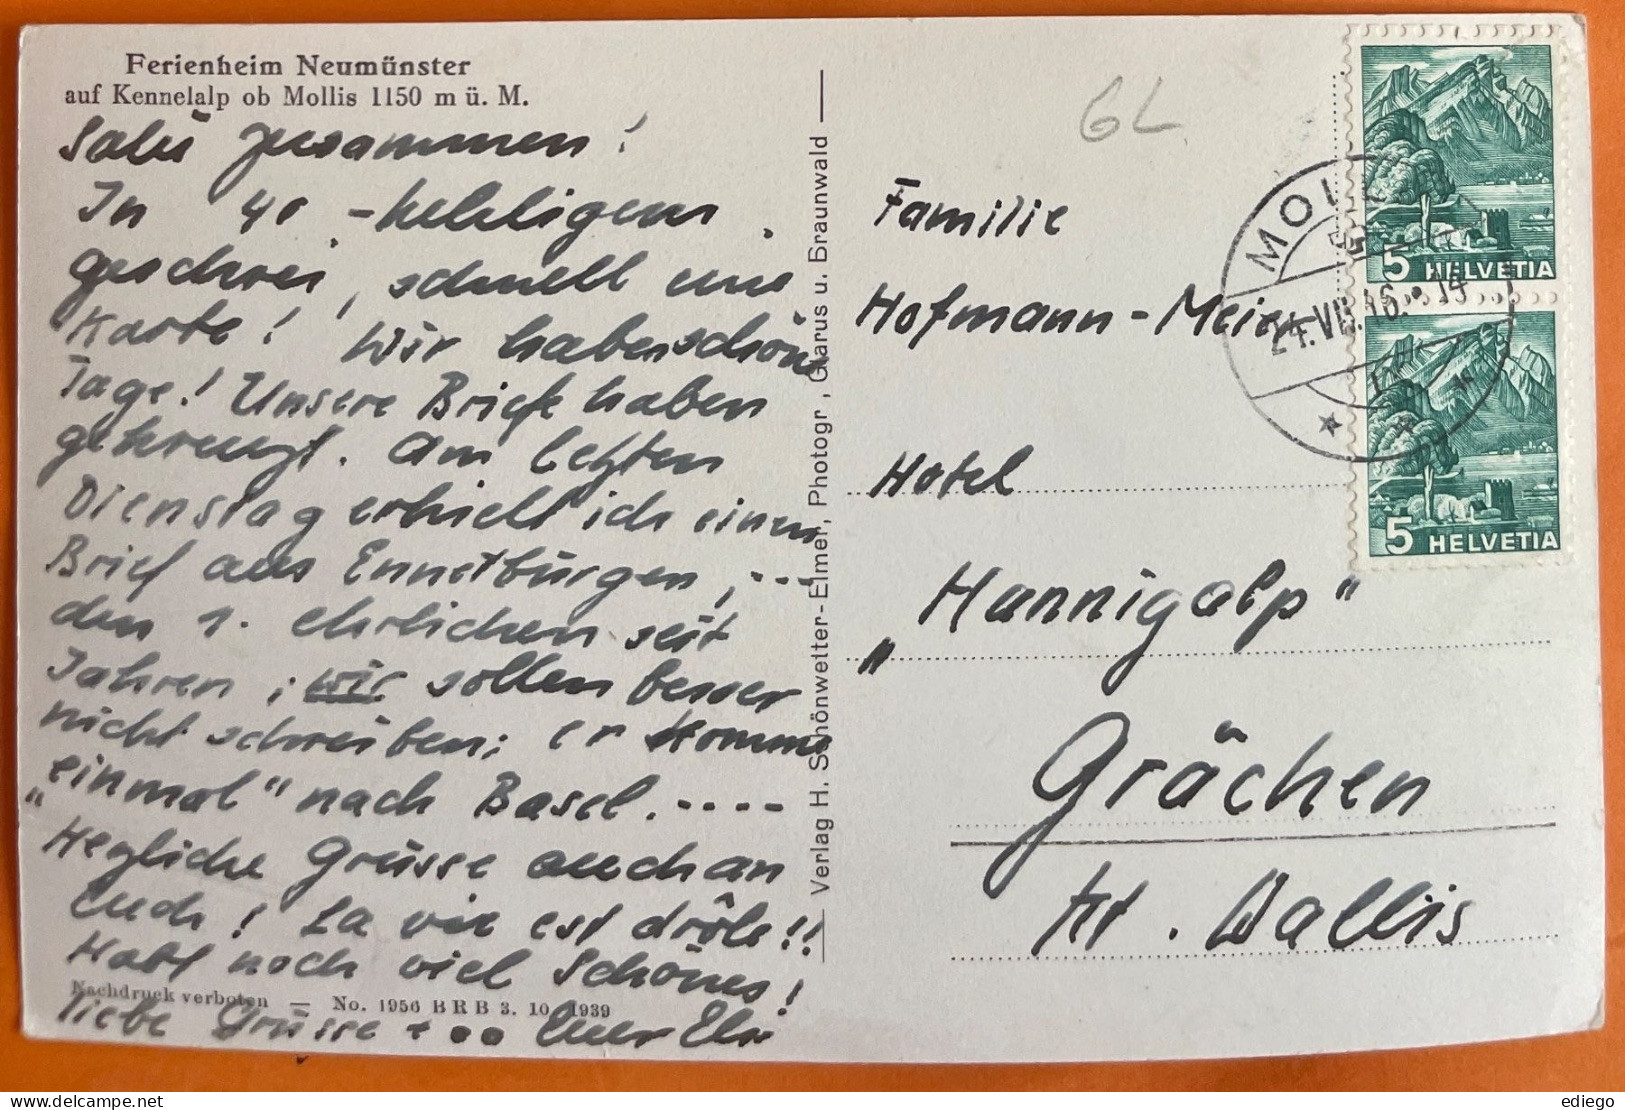 Ferienheim Neumünster
auf Kennelalp ob Mollis 1150 m ü. M.
Salü zusammen!
In 40-kehligem
geschrei, schnell eine
Karte! Wir haben schöne
Tage! Unsere Briefe haben
gekreuzt. Am letzten
Dienstag erhielt ich einen
Brief aus Ennetbürgen, ---
den 1. ehrlichen seit
Jahren; wir sollen besser
nicht schreiben; er komme
„einmal" nach Basel. ----
Herzliche Grüsse auch an
Euch! La vie est drôle!!
Habt noch viel Schönes!
Nachdruck verboten — No. 1956 BRB 3. 10. 1939
liebe Grüsse + oo Euer
Verlag H. Schönwetter-Elmer, Photogr., Glarus u. Braunwald
GL
Familie
Hofmann-Meier
Hotel
„Hannigalp"
Grächen
Kt. Wallis
5 HELVETIA
5 HELVETIA
MOLLIS
24.VII.46.
ediego